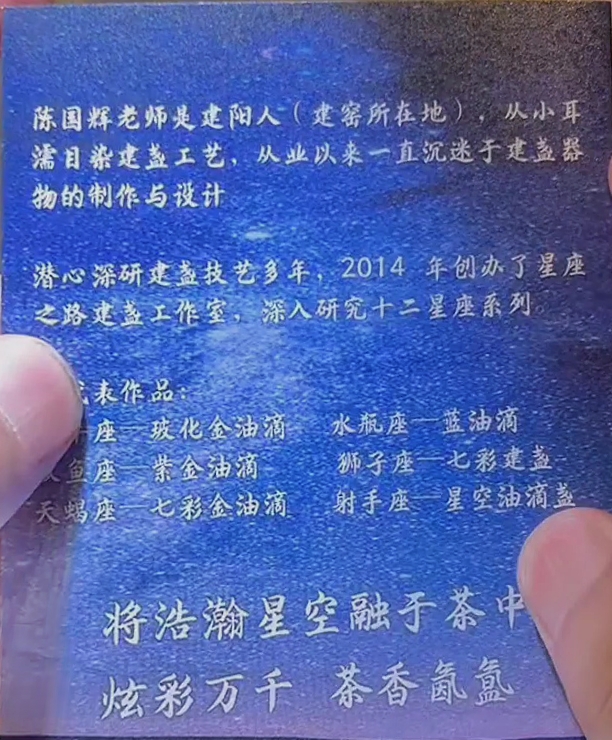 陈国辉老师是建阳人（建窑所在地），从小耳
濡目染建盏工艺，从业以来一直沉迷于建盏器
物的制作与设计
潜心深研建盏技艺多年，2014 年创办了星座
之路建盏工作室，深入研究十二星座系列。
表作品：
座—玻化金油滴 水瓶座—蓝油滴
鱼座—紫金油滴 狮子座—七彩建盏
天蝎座—七彩金油滴 射手座—星空油滴盏
将浩瀚星空融于茶中
炫彩万千 茶香氤氲